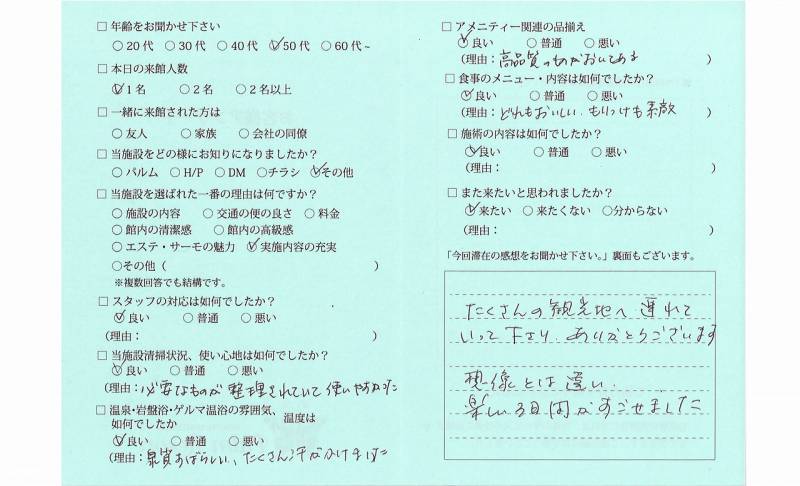 □ 年齢をお聞かせ下さい
○20代 ○30代 ○40代 ○50代 ○60代~
□ 本日の来館人数
○1名 ○2名 ○2名以上
□ 一緒に来館された方は
○友人 ○家族 ○会社の同僚
□ 当施設をどの様にお知りになりましたか?
○パルム ○H/P ○DM ○チラシ ○その他
□ 当施設を選ばれた一番の理由は何ですか?
○施設の内容 ○交通の便の良さ ○料金
○館内の清潔感 ○館内の高級感
○エステ・サーモの魅力 ○実施内容の充実
○その他( )
※複数回答でも結構です。
□ スタッフの対応は如何でしたか?
○良い ○普通 ○悪い
(理由: )
□ 当施設清掃状況、使い心地は如何でしたか?
○良い ○普通 ○悪い
(理由:必要なものが整理されていて使いやすかった
□ 温泉・岩盤浴・ゲルマ温浴の雰囲気、 温度は
如何でしたか
○良い ○普通 ○悪い
(理由:泉質すばらしい、たくさん汗がかけました
□ アメニティー関連の品揃え
○良い ○普通 ○悪い
(理由:高品質のものがおいてある )
□ 食事のメニュー・内容は如何でしたか?
○良い ○普通 ○悪い
(理由:どれもおいしい もりつけも素敵
□ 施術の内容は如何でしたか?
○良い ○普通 ○悪い
(理由: )
□ また来たいと思われましたか?
○来たい ○来たくない ○分からない
(理由: )
「今回滞在の感想をお聞かせ下さい。」裏面もございます。
たくさんの観光地へ連れて
いって下さり ありがとうございます
想像とは違い
楽しい3日間がすごせました